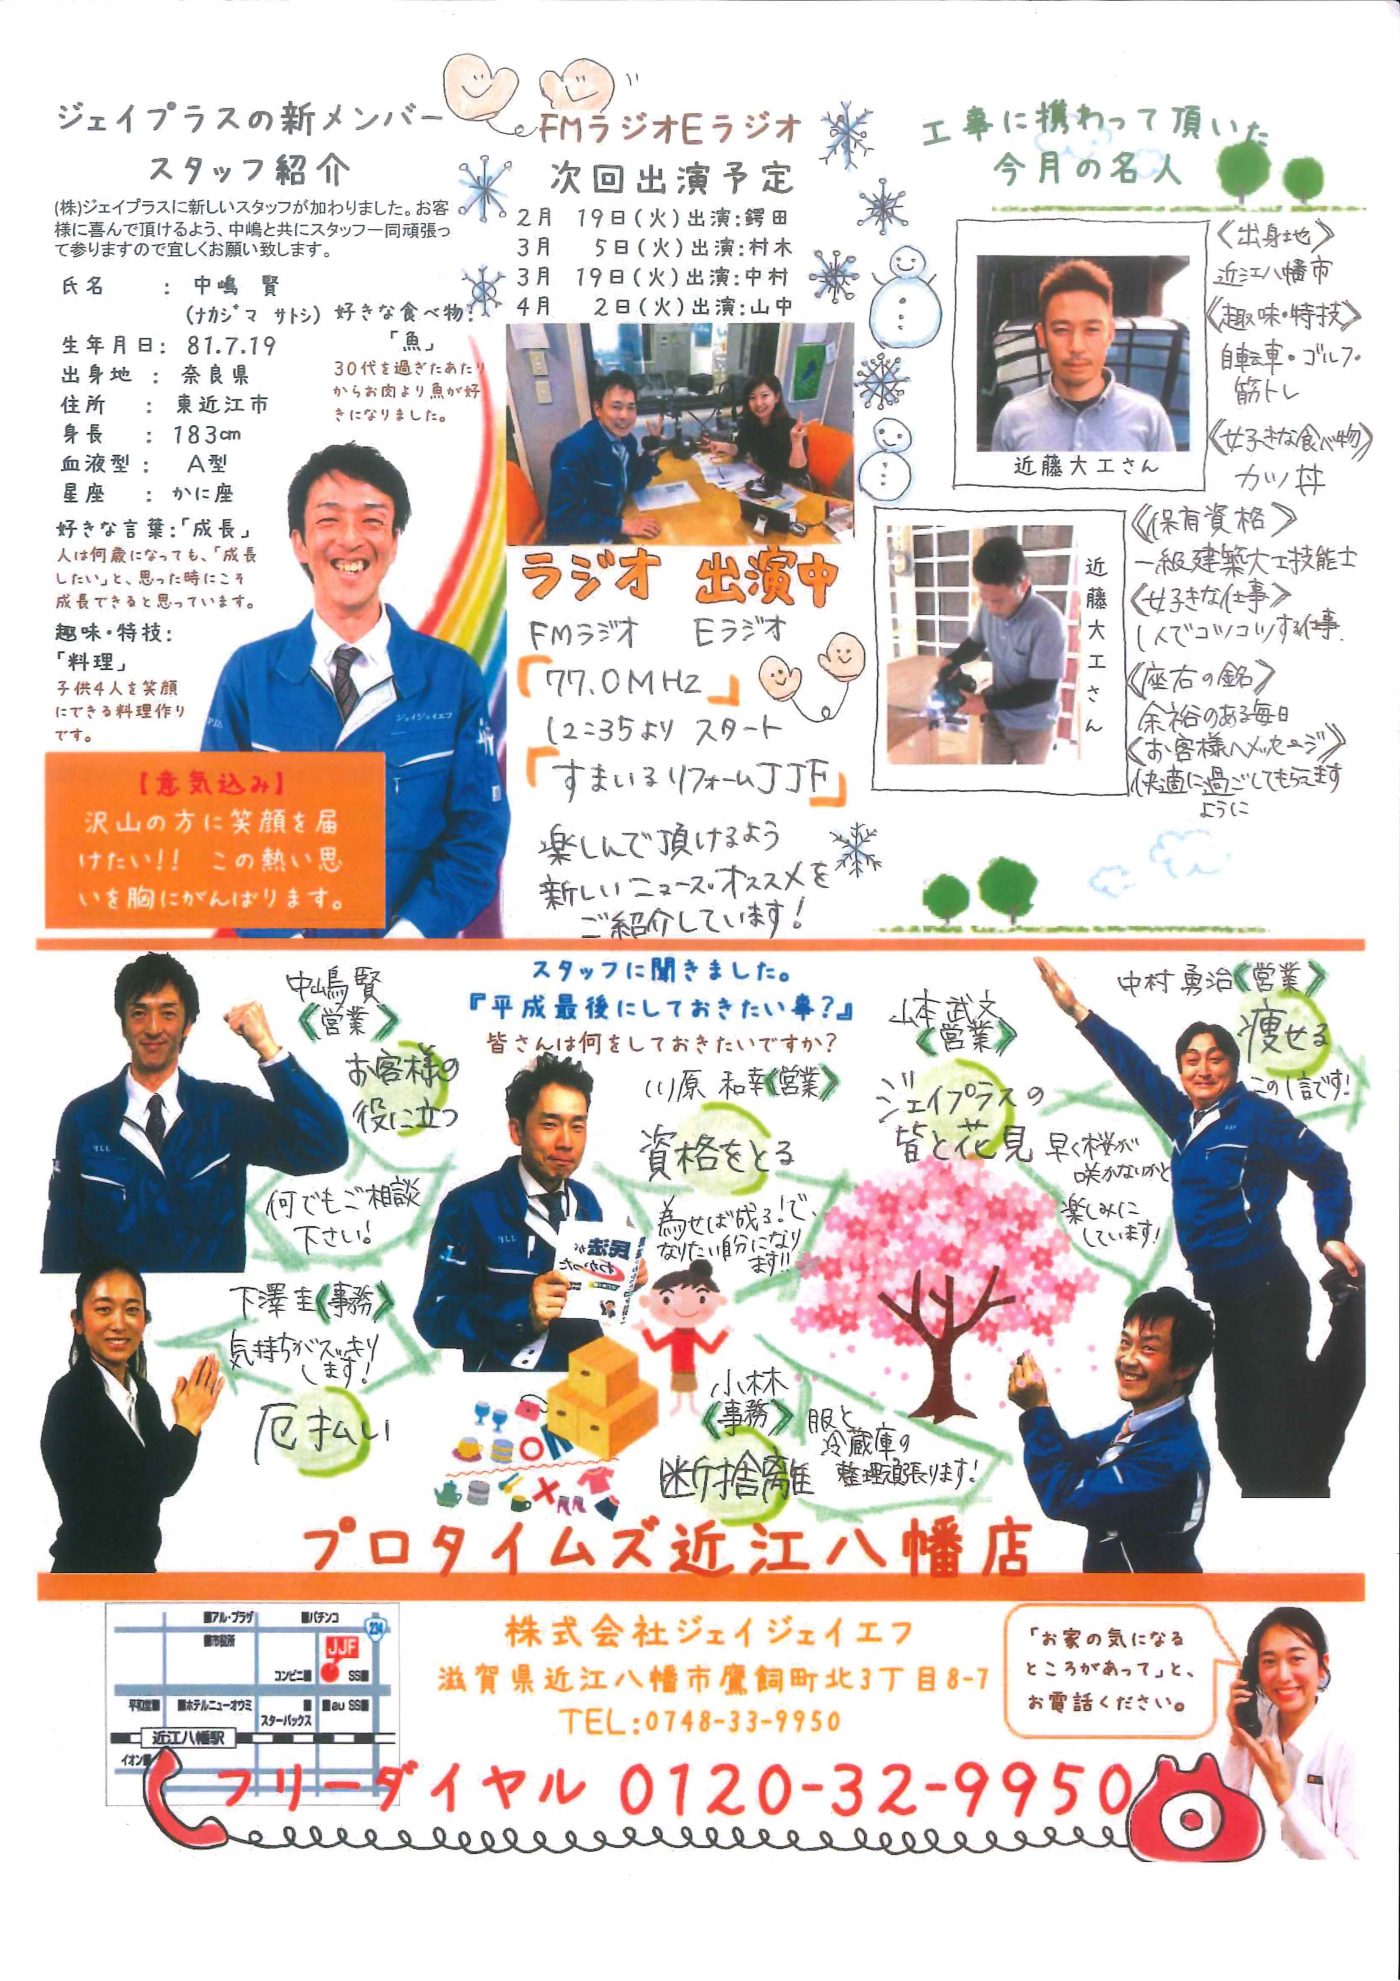 ジェイプラスの新メンバー
スタッフ紹介
(株)ジェイプラスに新しいスタッフが加わりました。お客
様に喜んで頂けるよう、中嶋と共にスタッフ一同頑張っ
て参りますので宜しくお願い致します。
氏名 : 中嶋 賢
(ナカジマ サトシ)
生年月日: 81.7.19
出身地 : 奈良県
住所 : 東近江市
身長 : 183cm
血液型 : A型
星座 : かに座
好きな食べ物:
「魚」
30代を過ぎたあたり
からお肉より魚が好
きになりました。
好きな言葉:「成長」
人は何歳になっても、「成長
したい」と、思った時にこそ
成長できると思っています。
趣味・特技:
「料理」
子供4人を笑顔
にできる料理作り
です。
ジェイジェイエフ
【意気込み】
沢山の方に笑顔を届
けたい!! この熱い思
いを胸にがんばります。
FMラジオEラジオ
次回出演予定
2月 19日(火)出演:鍔田
3月 5日(火)出演:村木
3月 19日(火)出演:中村
4月 2日(火)出演:山中
ラジオ 出演中
FMラジオ Eラジオ
「77.0MHz」
12:35より スタート
「すまいるリフォームJJF」
楽しんで頂けるよう
新しいニュース・オススメを
ご紹介しています!
工事に携わって頂いた
今月の名人
近藤大工さん
《出身地》
近江八幡市
《趣味・特技》
自転車・ゴルフ・
筋トレ
《好きな食べ物》
カツ丼
近藤大工さん
《保有資格》
一級建築大工技能士
《好きな仕事》
1人でコツコツする仕事
《座右の銘》
余裕のある毎日
《お客様へメッセージ》
快適に過ごしてもらえます
ように
スタッフに聞きました。
『平成最後にしておきたい事?』
皆さんは何をしておきたいですか?
中嶋 賢
《営業》
お客様の
役に立つ
何でもご相談
下さい!
川原 和幸《営業》
資格をとる
為せば成る!で、
なりたい自分になり
ます!!
民法が
わかった
山本 武文
《営業》
ジェイプラスの
皆と花見
早く桜が
咲かないかと
楽しみに
しています!
中村 勇治《営業》
痩せる
この1言です!
下澤 圭《事務》
気持ちがスッキリ
します!
厄払い
小林
《事務》
断捨離
服と
冷蔵庫の
整理頑張ります!
プロタイムズ近江八幡店
アル・プラザ
パチンコ
234
市役所
JJF
コンビニ
SS
平和堂
ホテルニューオウミ
au SS
スターバックス
近江八幡駅
イオン
株式会社ジェイジェイエフ
滋賀県近江八幡市鷹飼町北3丁目8-7
TEL:0748-33-9950
「お家の気になる
ところがあって」と、
お電話ください。
フリーダイヤル 0120-32-9950